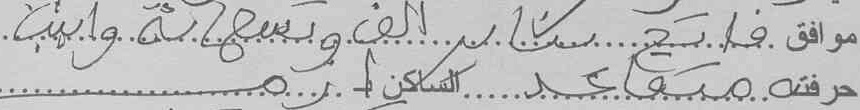 موافق فاتح سنة الف وتسعمائة واثنين
حرفته متقاعد الساكن ازمر